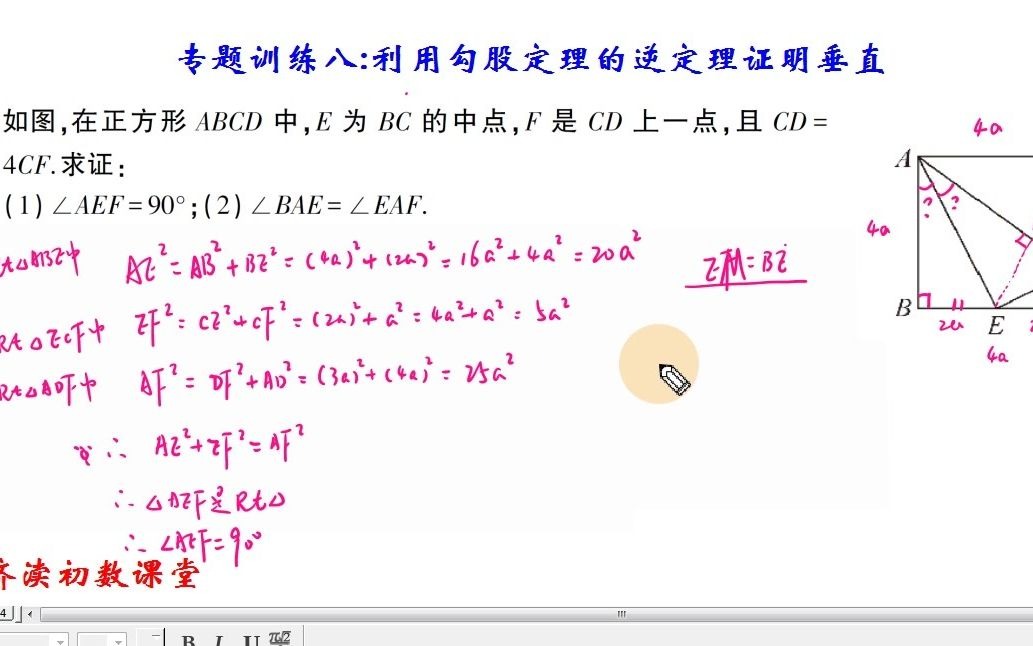 专题训练八:利用勾股定理的逆定理证明垂直
如图,在正方形 ABCD 中,E 为 BC 的中点,F 是 CD 上一点,且 CD =
4CF.求证:
(1) ∠AEF = 90°;(2) ∠BAE = ∠EAF.
Rt△ABE中 AE² = AB² + BE² = (4a)² + (2a)² = 16a² + 4a² = 20a²
EM = BE
Rt△ECF中 EF² = CE² + CF² = (2a)² + a² = 4a² + a² = 5a²
Rt△ADF中 AF² = DF² + AD² = (3a)² + (4a)² = 25a²
∴ AE² + EF² = AF²
∴ △AEF是Rt△
∴ ∠AEF = 90°
济渎初数课堂
4a
A
? ?
4a
B
2a E
4a
4
B I U